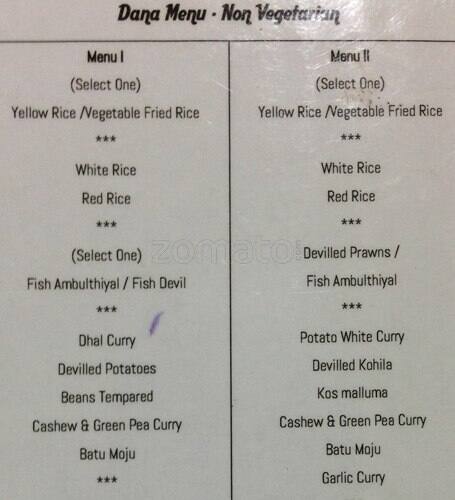 Dana Menu - Non Vegetarian
Menu I
(Select One)
Yellow Rice /Vegetable Fried Rice
***
White Rice
Red Rice
***
(Select One)
Fish Ambulthiyal / Fish Devil
***
Dhal Curry
Devilled Potatoes
Beans Tempared
Cashew & Green Pea Curry
Batu Moju
***
Menu II
(Select One)
Yellow Rice /Vegetable Fried Rice
***
White Rice
Red Rice
***
Devilled Prawns /
Fish Ambulthiyal
***
Potato White Curry
Devilled Kohila
Kos malluma
Cashew & Green Pea Curry
Batu Moju
Garlic Curry
zomato